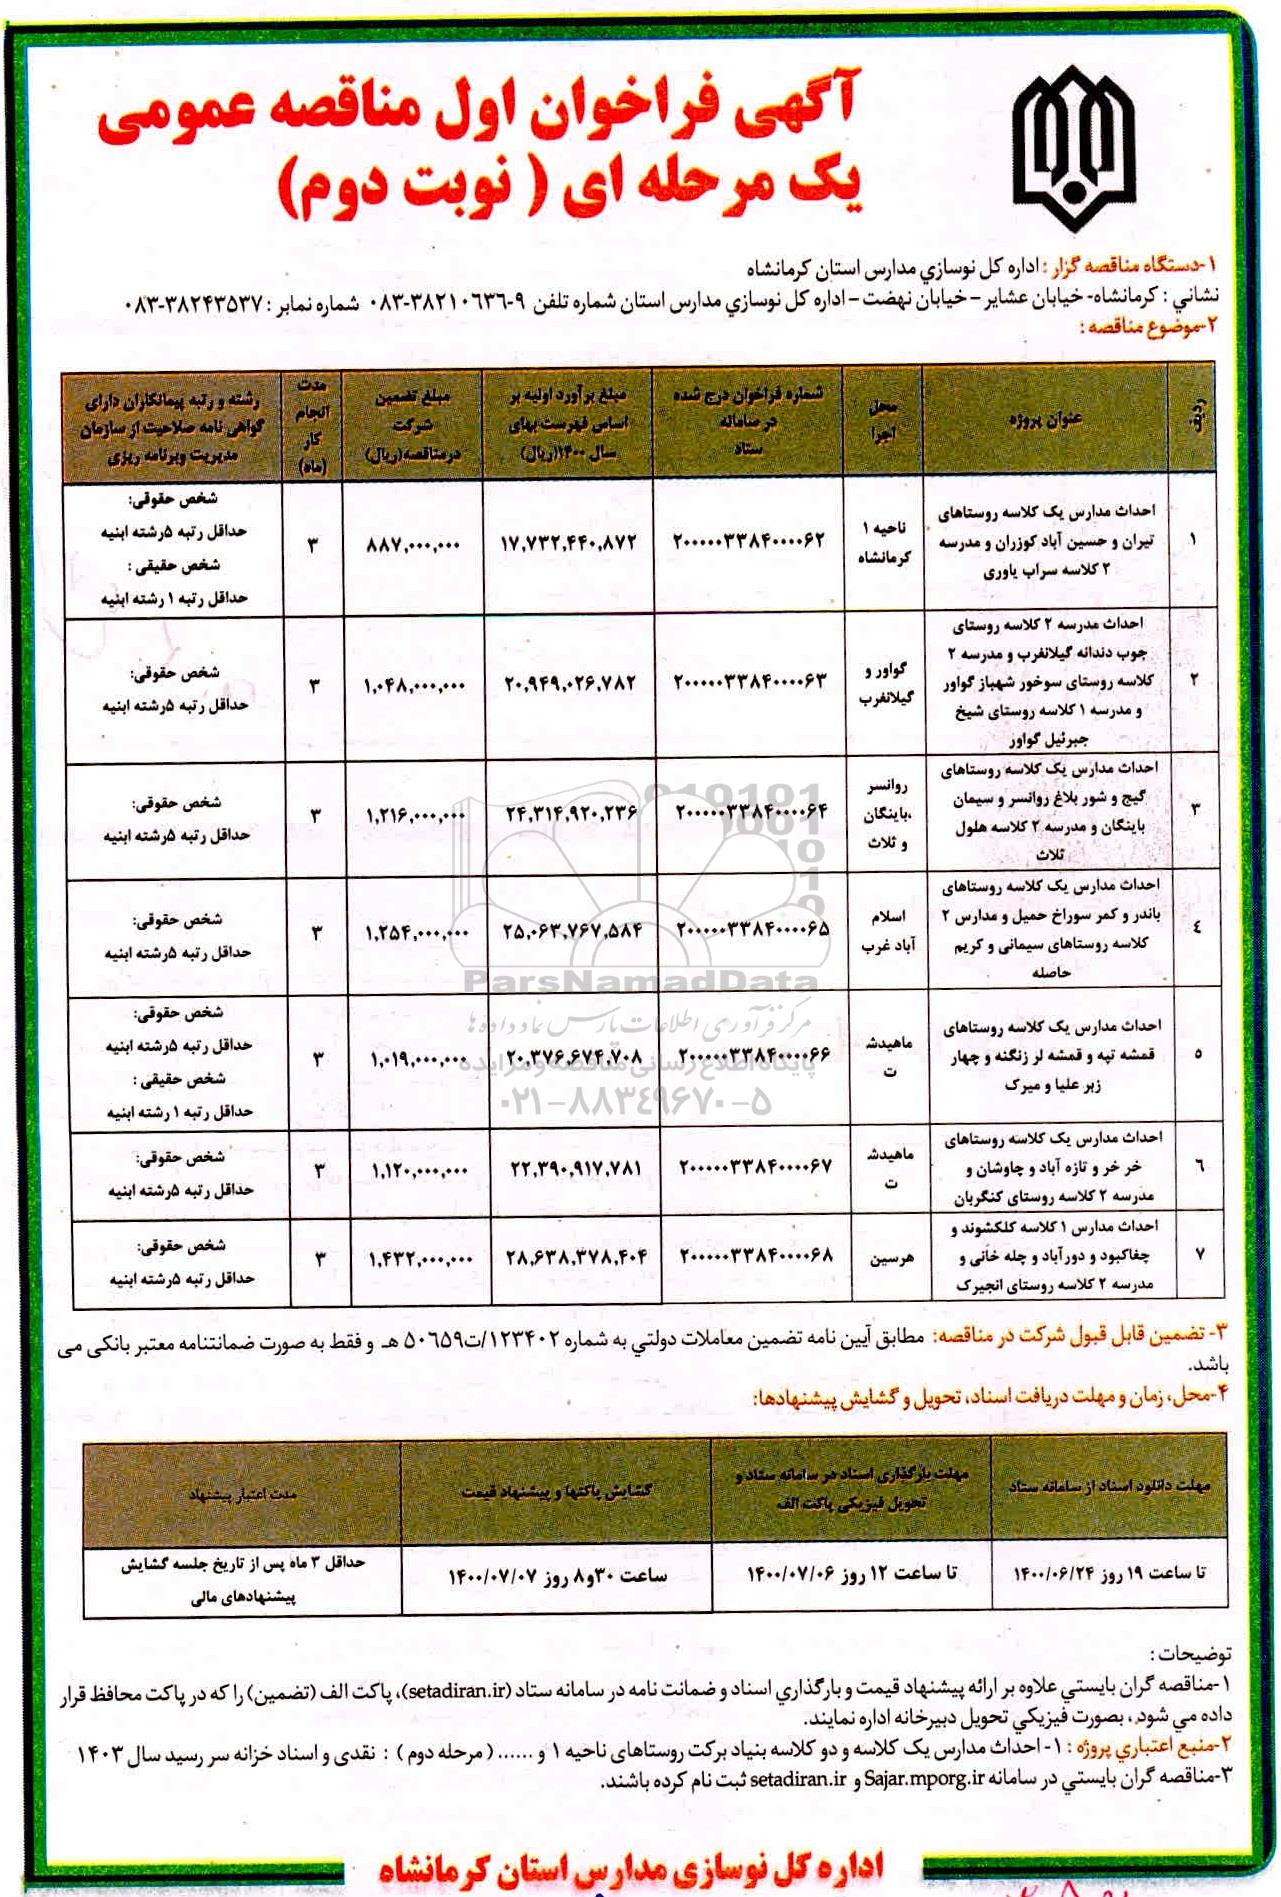 آگهی فراخوان اول مناقصه عمومی
یک مرحله ای ( نوبت دوم)
۱-دستگاه مناقصه گزار : اداره کل نوسازي مدارس استان کرمانشاه
نشاني : کرمانشاه- خیابان عشایر – خیابان نهضت – اداره کل نوسازي مدارس استان شماره تلفن ۹-۰۸۳-۳۸۲۱۰۶۳۶ شماره نمابر : ۰۸۳-۳۸۲۴۳۵۳۷
۲-موضوع مناقصه :
ردیف
عنوان پروژه
محل
اجرا
شماره فراخوان درج شده
در سامانه
ستاد
مبلغ برآورد اولیه بر
اساس فهرست بهای
سال ۱۴۰۰(ریال)
مبلغ تضمین
شرکت
درمناقصه(ریال)
مدت
انجام
کار
(ماه)
رشته و رتبه پیمانکاران دارای
گواهی نامه صلاحیت از سازمان
مدیریت وبرنامه ریزی
۱
احداث مدارس یک کلاسه روستاهای
تیران و حسین آباد کوزران و مدرسه
۲ کلاسه سراب یاوری
ناحیه ۱
کرمانشاه
۲۰۰۰۰۰۳۳۸۴۰۰۰۰۶۲
۱۷,۷۳۲,۴۴۰,۸۷۲
۸۸۷,۰۰۰,۰۰۰
۳
شخص حقوقی:
حداقل رتبه ۵رشته ابنیه
شخص حقیقی :
حداقل رتبه ۱ رشته ابنیه
۲
احداث مدرسه ۲ کلاسه روستای
چوب دندانه گیلانغرب و مدرسه ۲
کلاسه روستای سوخور شهباز گواور
و مدرسه ۱ کلاسه روستای شیخ
جبرئیل گواور
گواور و
گیلانغرب
۲۰۰۰۰۰۳۳۸۴۰۰۰۰۶۳
۲۰,۹۴۹,۰۲۶,۷۸۲
۱,۰۴۸,۰۰۰,۰۰۰
۳
شخص حقوقی:
حداقل رتبه ۵رشته ابنیه
۳
احداث مدارس یک کلاسه روستاهای
گیج و شور بلاغ روانسر و سیمان
باینگان و مدرسه ۲ کلاسه هلول
ثلاث
روانسر
،باینگان
و ثلاث
۲۰۰۰۰۰۳۳۸۴۰۰۰۰۶۴
۲۴,۳۱۴,۹۲۰,۲۳۶
۱,۲۱۶,۰۰۰,۰۰۰
۳
شخص حقوقی:
حداقل رتبه ۵رشته ابنیه
٤
احداث مدارس یک کلاسه روستاهای
باندر و کمر سوراخ حمیل و مدارس ۲
کلاسه روستاهای سیمانی و کریم
حاصله
اسلام
آباد غرب
۲۰۰۰۰۰۳۳۸۴۰۰۰۰۶۵
۲۵,۰۶۳,۷۶۷,۵۸۴
۱,۲۵۴,۰۰۰,۰۰۰
۳
شخص حقوقی:
حداقل رتبه ۵رشته ابنیه
ParsNamadData
مرکز فرآوری اطلاعات پارس نماد داده ها
پایگاه اطلاع رسانی مناقصه و مزایده
۰۲۱-۸۸۳۴۹۶۷۰-۵
۵
احداث مدارس یک کلاسه روستاهای
قمشه تپه و قمشه لر زنگنه و چهار
زبر علیا و میرک
ماهیدش
ت
۲۰۰۰۰۰۳۳۸۴۰۰۰۰۶۶
۲۰,۳۷۶,۶۷۴,۷۰۸
۱,۰۱۹,۰۰۰,۰۰۰
۳
شخص حقوقی:
حداقل رتبه ۵رشته ابنیه
شخص حقیقی :
حداقل رتبه ۱ رشته ابنیه
٦
احداث مدارس یک کلاسه روستاهای
خر خر و تازه آباد و چاوشان و
مدرسه ۲ کلاسه روستای کنگربان
ماهیدش
ت
۲۰۰۰۰۰۳۳۸۴۰۰۰۰۶۷
۲۲,۳۹۰,۹۱۷,۷۸۱
۱,۱۲۰,۰۰۰,۰۰۰
۳
شخص حقوقی:
حداقل رتبه ۵رشته ابنیه
۷
احداث مدارس ۱ کلاسه کلکشوند و
چغاکبود و دورآباد و چله خانی و
مدرسه ۲ کلاسه روستای انجیرک
هرسین
۲۰۰۰۰۰۳۳۸۴۰۰۰۰۶۸
۲۸,۶۳۸,۳۷۸,۴۰۴
۱,۴۳۲,۰۰۰,۰۰۰
۳
شخص حقوقی:
حداقل رتبه ۵رشته ابنیه
۳- تضمین قابل قبول شرکت در مناقصه: مطابق آیین نامه تضمین معاملات دولتي به شماره ۱۲۳۴۰۲/ت۵۰۶۵۹ هـ و فقط به صورت ضمانتنامه معتبر بانکی می
باشد.
۴-محل، زمان و مهلت دریافت اسناد، تحویل و گشایش پیشنهادها:
مهلت دانلود اسناد از سامانه ستاد
مهلت بارگذاری اسناد در سامانه ستاد و
تحویل فیزیکی پاکت الف
گشایش پاکتها و پیشنهاد قیمت
مدت اعتبار پیشنهاد
تا ساعت ۱۹ روز ۱۴۰۰/۰۶/۲۴
تا ساعت ۱۲ روز ۱۴۰۰/۰۷/۰۶
ساعت ۳۰و۸ روز ۱۴۰۰/۰۷/۰۷
حداقل ۳ ماه پس از تاریخ جلسه گشایش
پیشنهادهای مالی
توضیحات :
۱-مناقصه گران بایستي علاوه بر ارائه پیشنهاد قیمت و بارگذاري اسناد و ضمانت نامه در سامانه ستاد (setadiran.ir)، پاکت الف (تضمین) را که در پاکت محافظ قرار
داده مي شود ، بصورت فیزیکي تحویل دبیرخانه اداره نمایند.
۲-منبع اعتباري پروژه : ۱- احداث مدارس یک کلاسه و دو کلاسه بنیاد برکت روستاهای ناحیه ۱ و ...... ( مرحله دوم ) : نقدی و اسناد خزانه سر رسید سال ۱۴۰۳
۳-مناقصه گران بایستي در سامانه Sajar.mporg.ir و setadiran.ir ثبت نام کرده باشند.
اداره کل نوسازی مدارس استان کرمانشاه